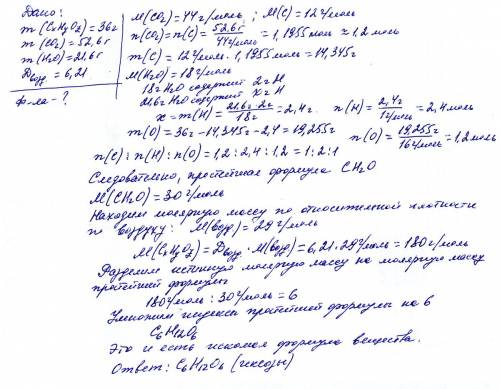 Дано:
m(CxHyOz)=36г
m(CO₂)=52,6г
m(H₂O)=21,6г
Dвозд=6,21
ф-ла-?
M(CO₂)=44г/моль; M(C)=12г/моль
n(CO₂)=n(C)=52,6г/44г/моль=1,1955моль≈1,2моль
m(C)=12г/моль·1,1955моль=14,345г
M(H₂O)=18г/моль
18г H₂O содержит 2г H
21,6г H₂O содержит xг H
x=m(H)=21,6г·2г/18г=2,4г. n(H)=2,4г/1г/моль=2,4моль
m(O)=36г-14,345г-2,4=19,255г n(O)=19,255г/16г/моль=1,2моль
n(C):n(H):n(O)=1,2:2,4:1,2=1:2:1
Следовательно, простейшая формула CH₂O
M(CH₂O)=30г/моль
Находим молярную массу по относительной плотности
по воздуху: M(возд)=29г/моль
M(CxHyOz)=Dвозд·M(возд)=6,21·29г/моль=180г/моль
Разделим истинную молярную массу на молярную массу
простейшей формулы
180г/моль:30г/моль=6
Умножим индексы простейшей формулы на 6
C₆H₁₂O₆
Это и есть искомая формула вещества.
Ответ: C₆H₁₂O₆ (гексозы)